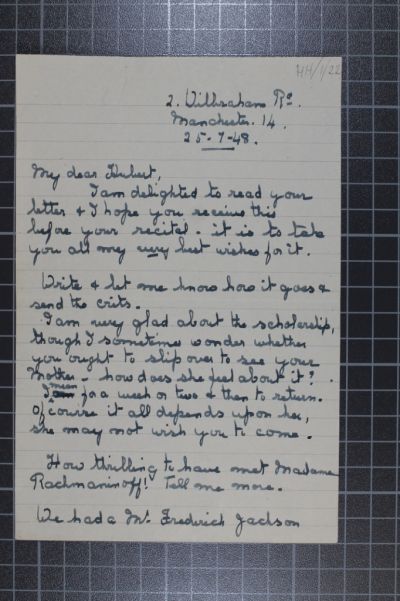 HH/1/22
2. Wilbraham Rd.
Manchester. 14.
25-7-48.
My dear Hubert,
I am delighted to read your
letter & I hope you receive this
before your recital - it is to take
you all my very best wishes for it.
Write & let me know how it goes &
send the crits.
I am very glad about the scholarship,
though I sometimes wonder whether
you ought to slip over to see your
Mother - how does she feel about it?
I mean for a week or two & then to return.
Of course it all depends upon her,
she may not wish you to come.
How thrilling to have met Madame
Rachmaninoff! Tell me more.
We had a Mr. Frederick Jackson